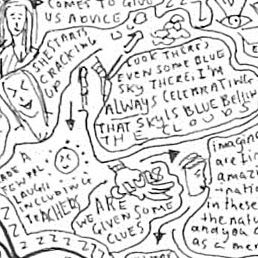 COMES TO GIVE
US ADVICE
SHE STARTS
CRACKING
UP
LOOK THERE'S
EVEN SOME BLUE
SKY THERE, I'M
ALWAYS CELEBRATING
THAT SKY IS BLUE BEHIND
THE CLOUDS
MADE A
FEW PPL
LAUGH
INCLUDING
TEACHERS
CLUES
WE ARE
GIVEN SOME
CLUES
imagine
are fin
amazi
natio
in these
the natu
and you c
as a mer
Z Z Z Z Z Z Z